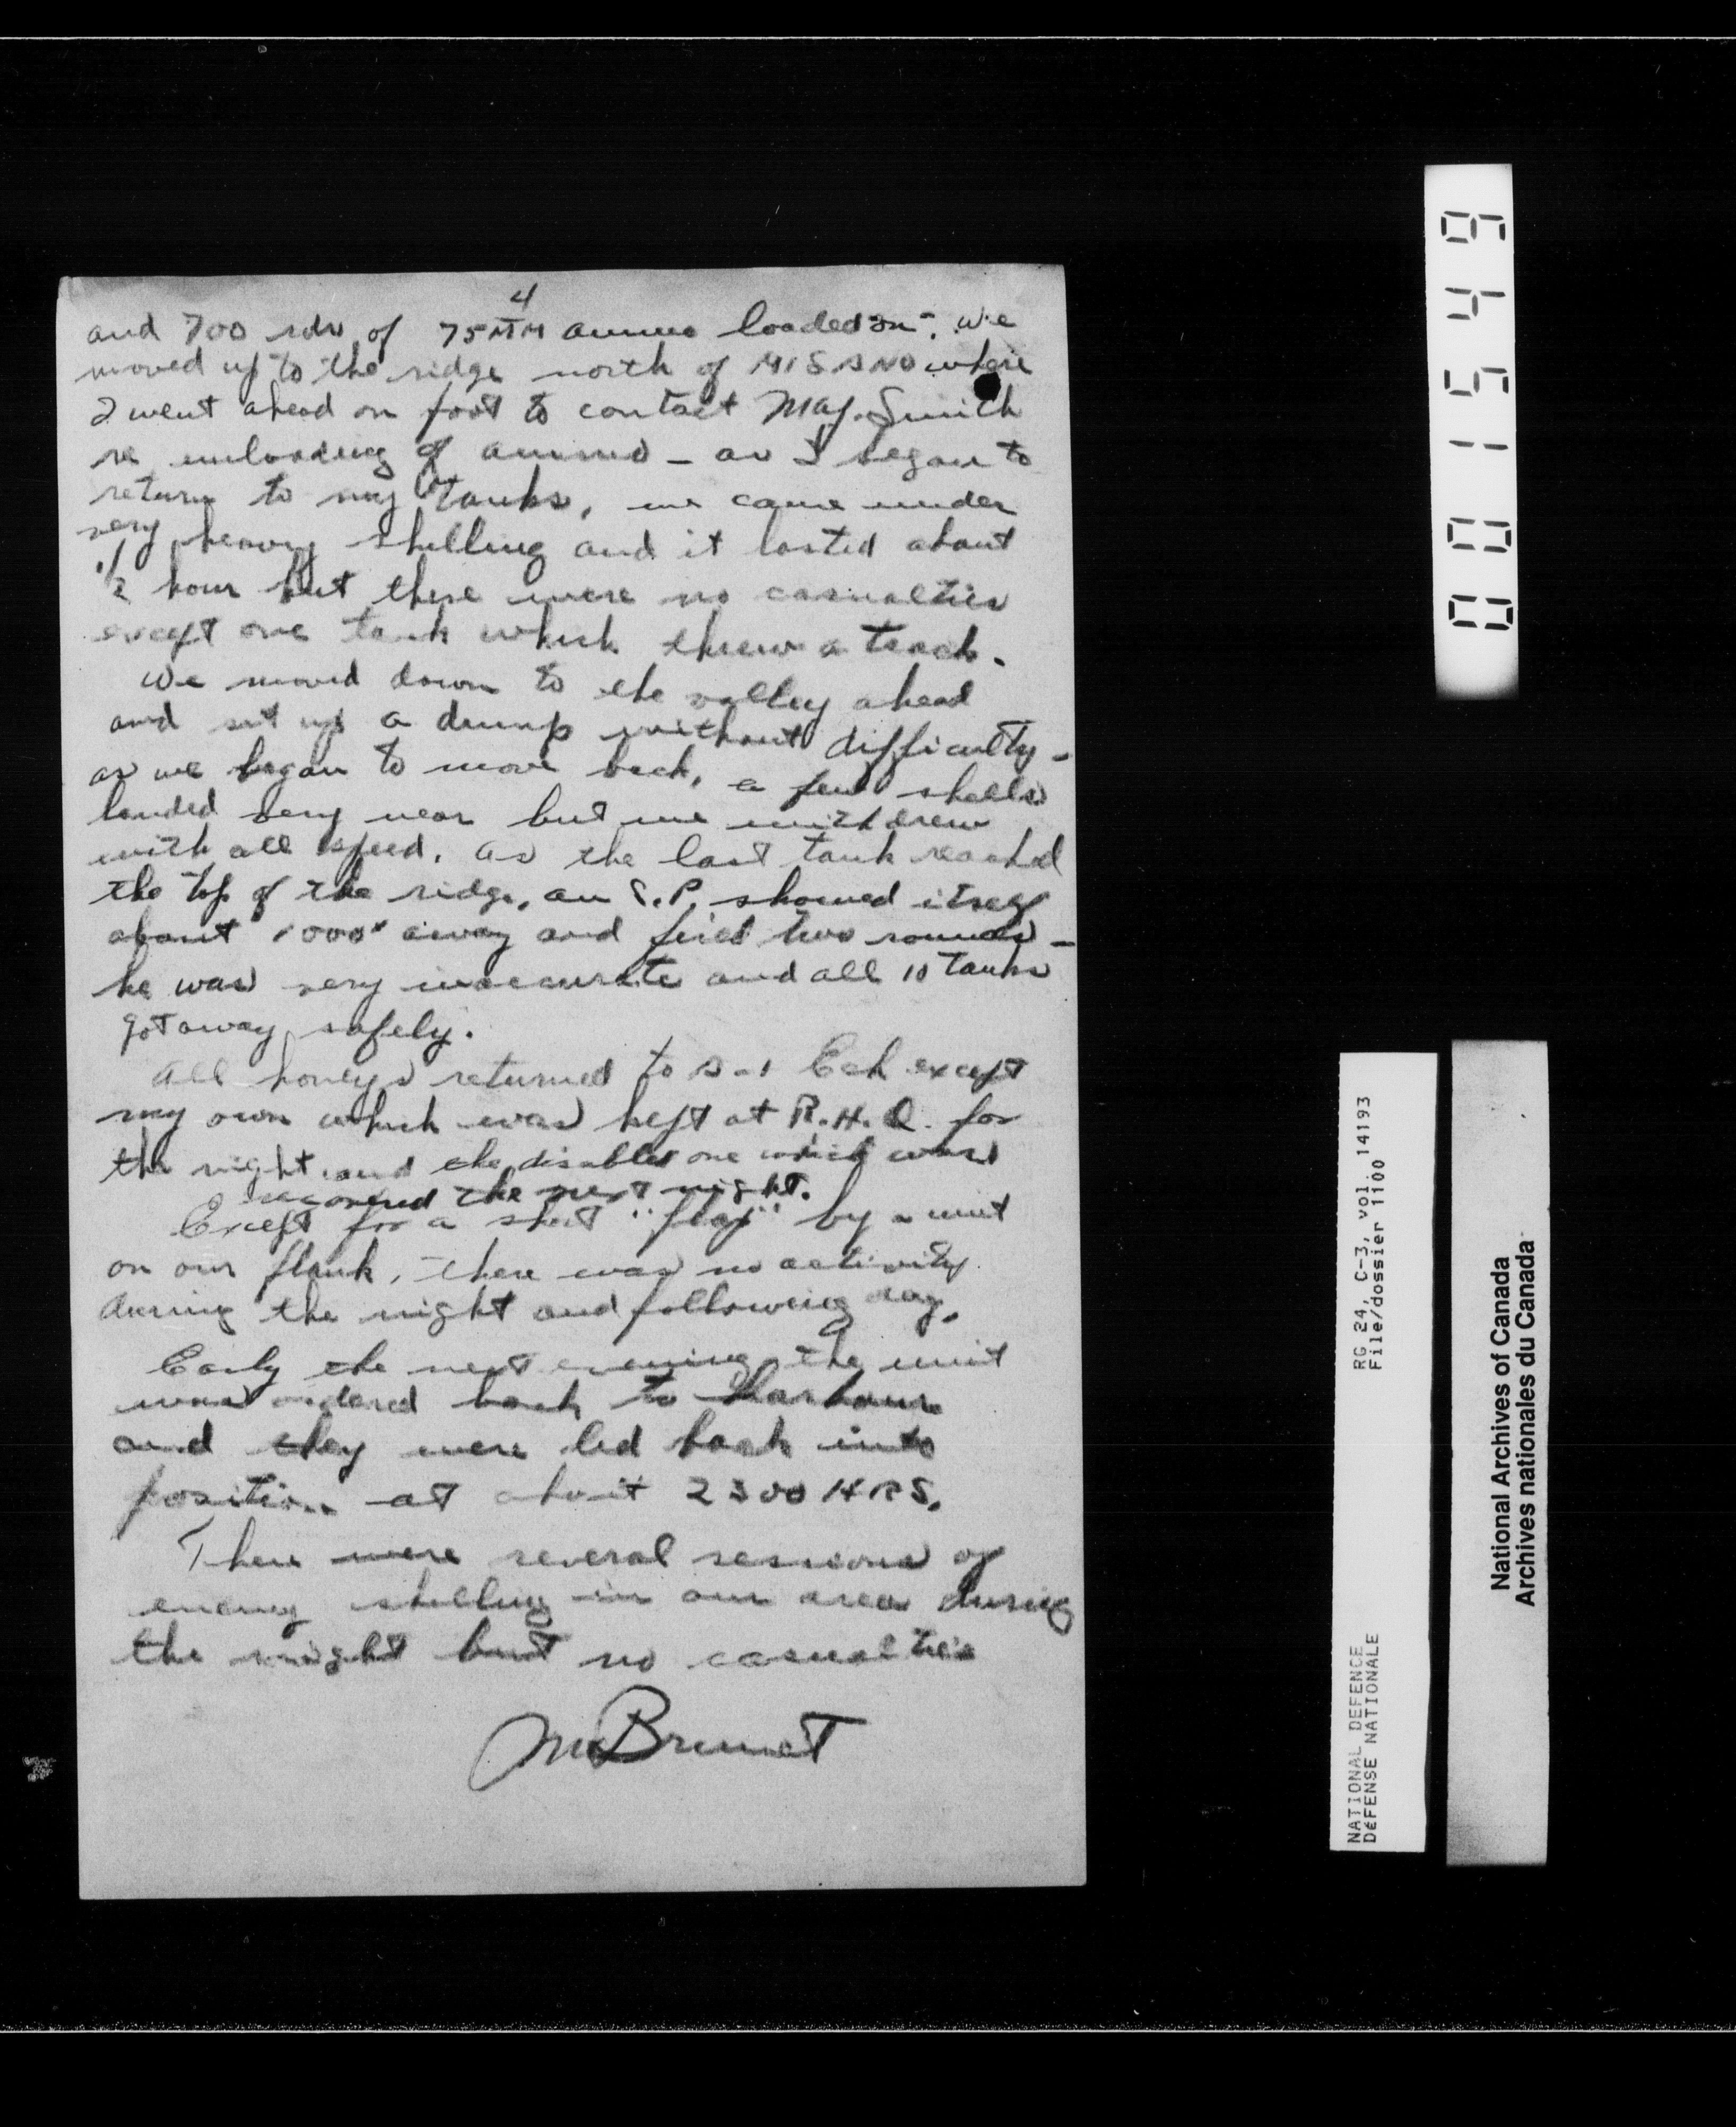 4
and 700 rds of 75MM ammo loaded on. We
moved up to the ridge north of MISANO where
I went ahead on foot to contact Maj. Smith
re unloading of ammo - as I began to
return to my tanks, we came under
very heavy shelling and it lasted about
1/2 hour but there were no casualties
except one tank which threw a track.
We moved down to the valley ahead
and set up a dump without difficulty -
as we began to move back, a few shells
landed very near but we withdrew
with all speed. As the last tank reached
the top of the ridge, an S.P. showed itself
about 1000x away and fired two rounds -
he was very inaccurate and all 10 tanks
got away safely.
All honeys returned to B-1 Ech except
my own which was kept at R.H.Q. for
the night and the disabled one which was
recovered the next night.
Except for a short "flap" by a unit
on our flank, there was no activity
during the night and following day.
Early the next evening the unit
was ordered back to harbour
and they were led back into
position at about 2300 HRS.
There were several sessions of
enemy shelling in our area during
the night but no casualties
Brunet
0001549
RG 24, C-3, vol. 14193
File/dossier 1100
NATIONAL DEFENCE
DÉFENSE NATIONALE
National Archives of Canada
Archives nationales du Canada